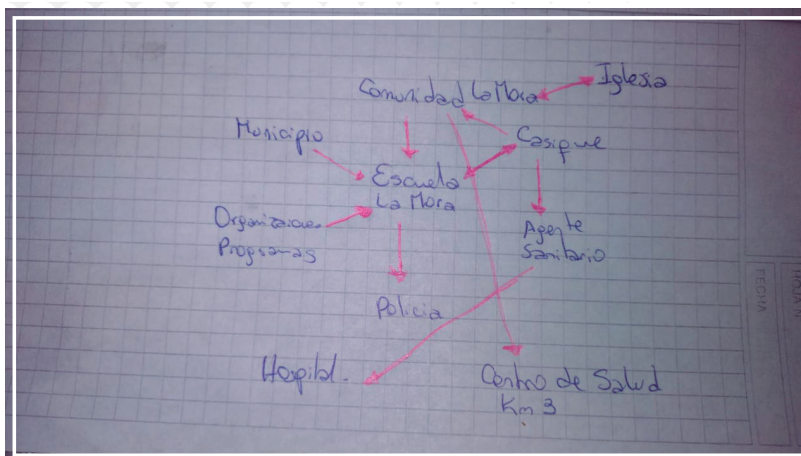 Iglesia
Comunidad La Mora
Municipio
Casique
Escuela
La Mora
Organizaciones
Programas
Agente
Sanitario
Policia
Hospital.
Centro de Salud
Km 3
HOJA N
FECHA